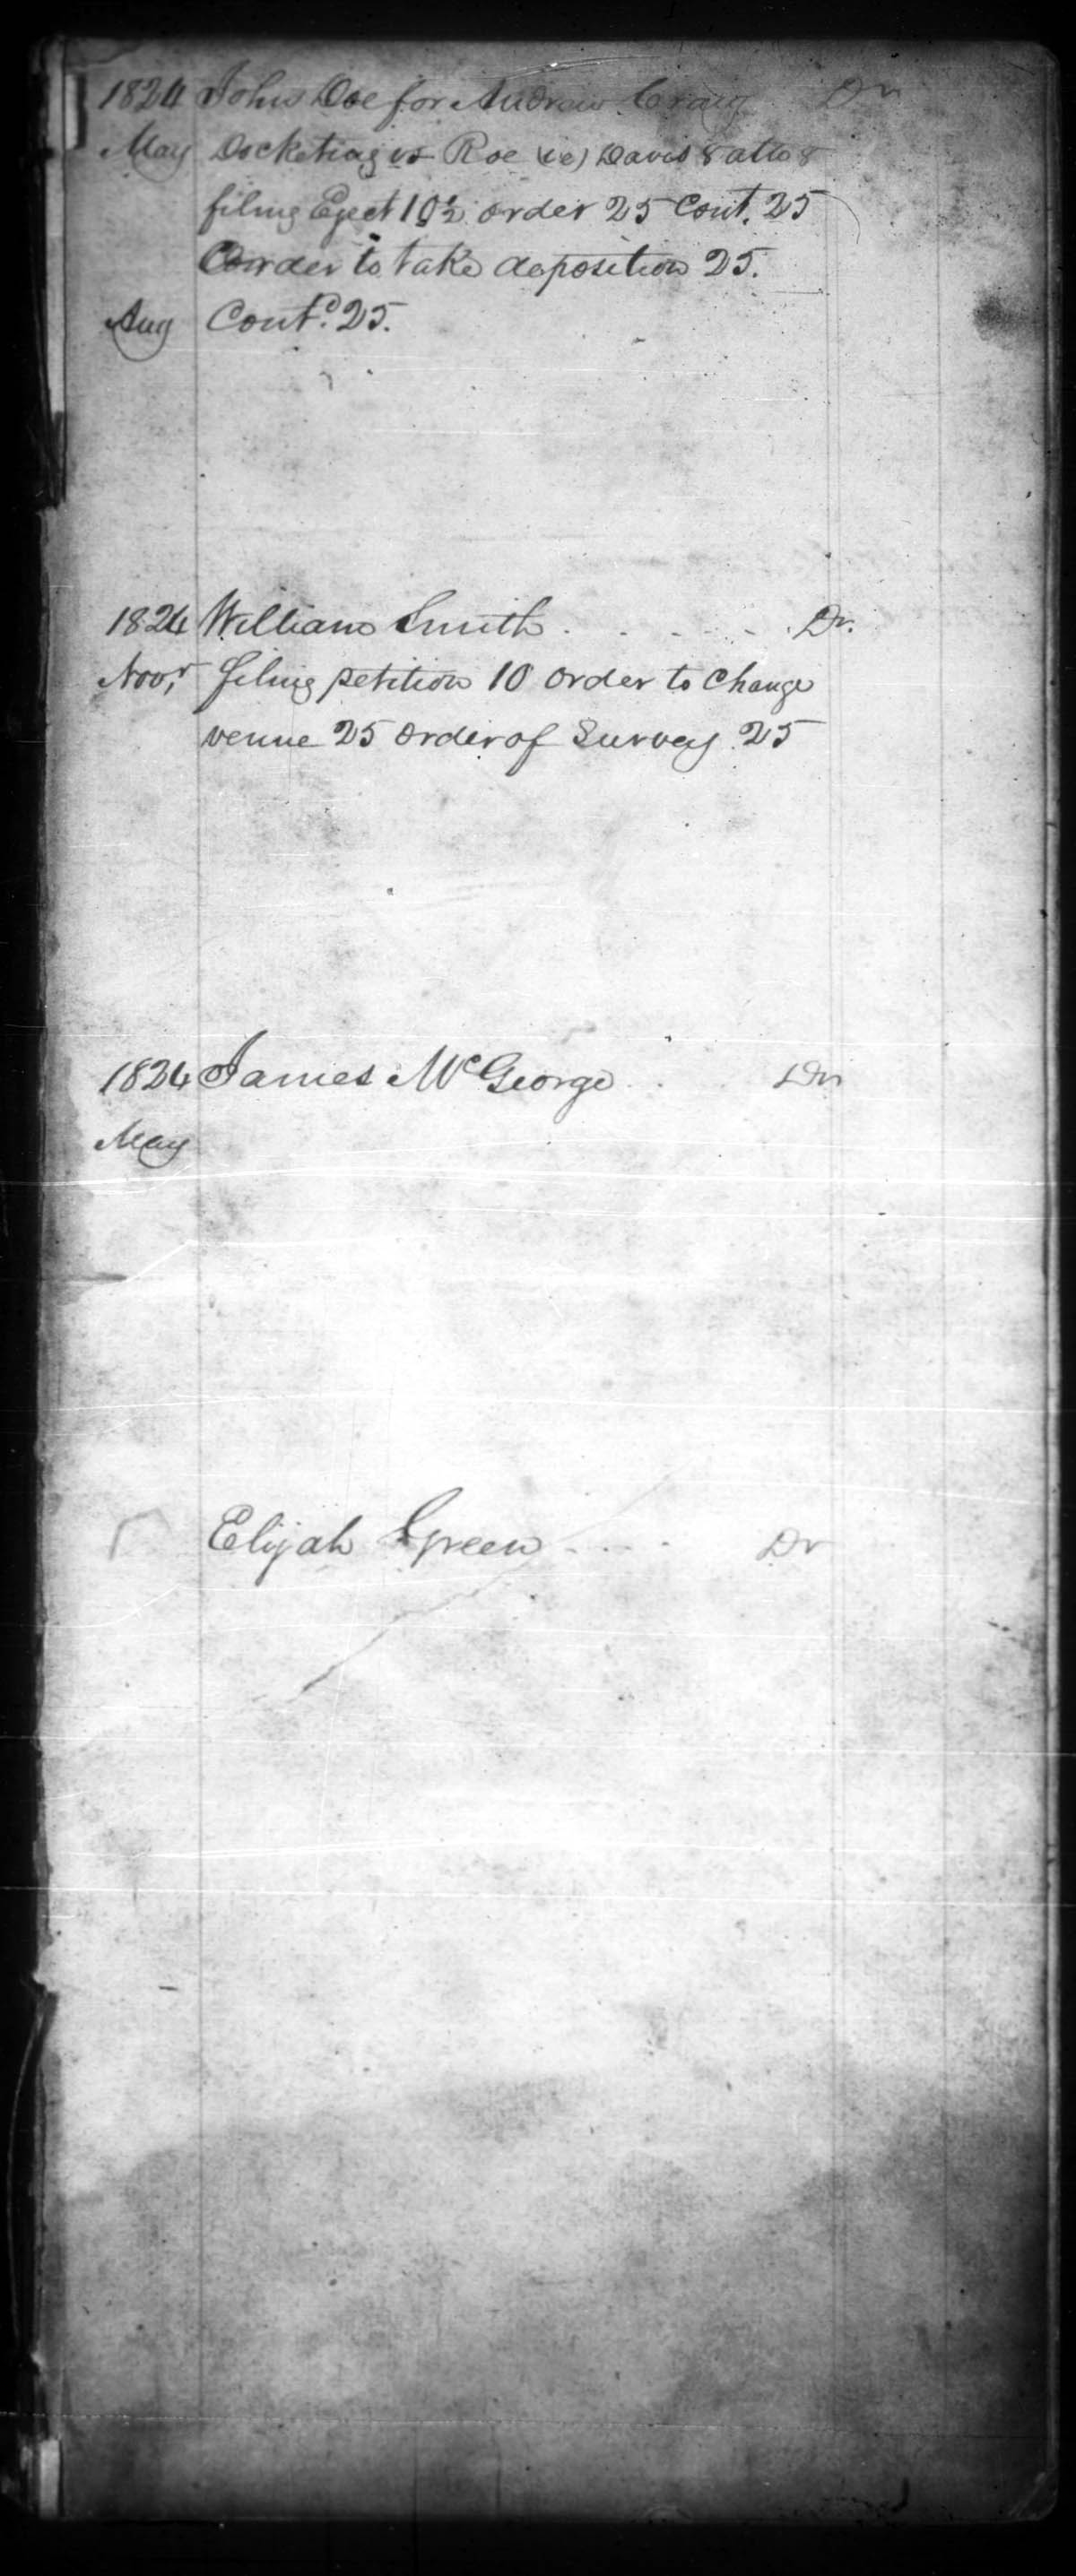 1824 John Doe for Andrew Craig Dr
May Docketing vs Roe (ie) Davis & als
filing Eject 10½ order 25 Cont. 25
Order to take deposition 25.
Aug Contd. 25.
1824 William Smith . . . . . Dr.
Novr filing petition 10 order to Change
venue 25 order of Survey 25
1824 James McGeorge . . Dr
May
Elijah Green .... Dr